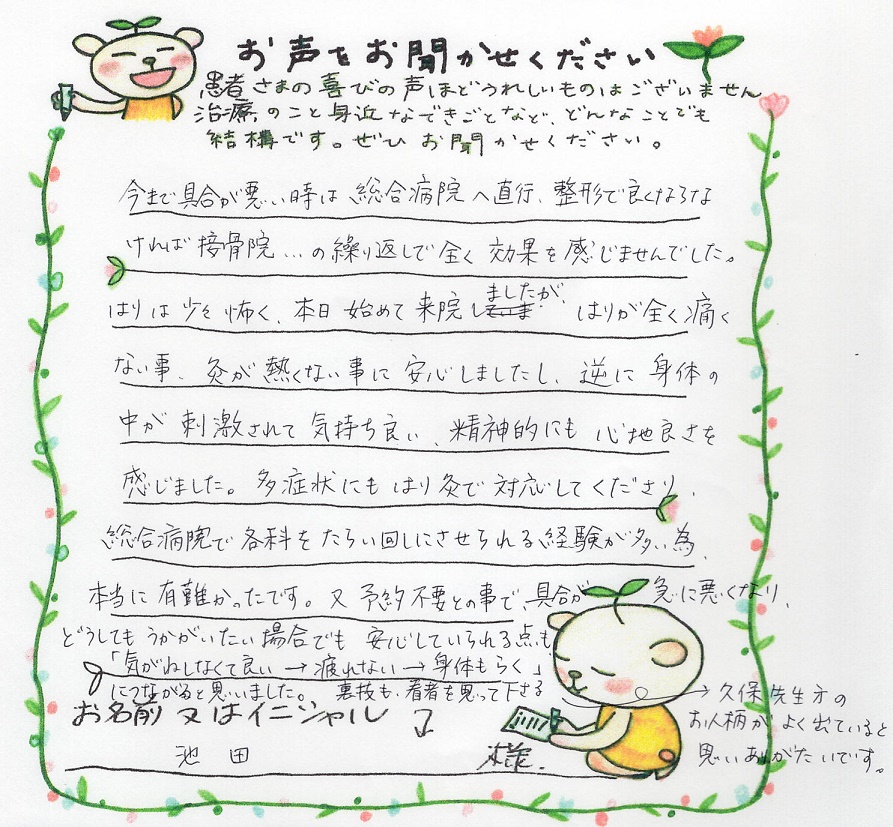 お声をお聞かせください
患者さまの喜びの声ほどうれしいものはございません
治療のこと身近なできごとなど、どんなことでも
結構です。ぜひお聞かせください。
今まで具合が悪い時は総合病院へ直行、整形で良くならな
ければ接骨院…の繰り返しで全く効果を感じませんでした。
はりは少々怖く、本日始めて来院しましたが、はりが全く痛く
ない事、灸が熱くない事に安心しましたし、逆に身体の
中が刺激されて気持ち良い、精神的にも心地良さを
感じました。多症状にもはり灸で対応してくださり、
総合病院で各科をたらい回しにさせられる経験が多い為、
本当に有難かったです。又予約不要との事で、具合が急に悪くなり、
どうしてもうかがいたい場合でも安心していられる点も
「気がねしなくて良い→疲れない→身体もらく」
につながると思いました。裏技も、患者を思って下さる
→久保先生方の
お人柄がよく出ていると
思いありがたいです。
お名前又はイニシャル
池田 様